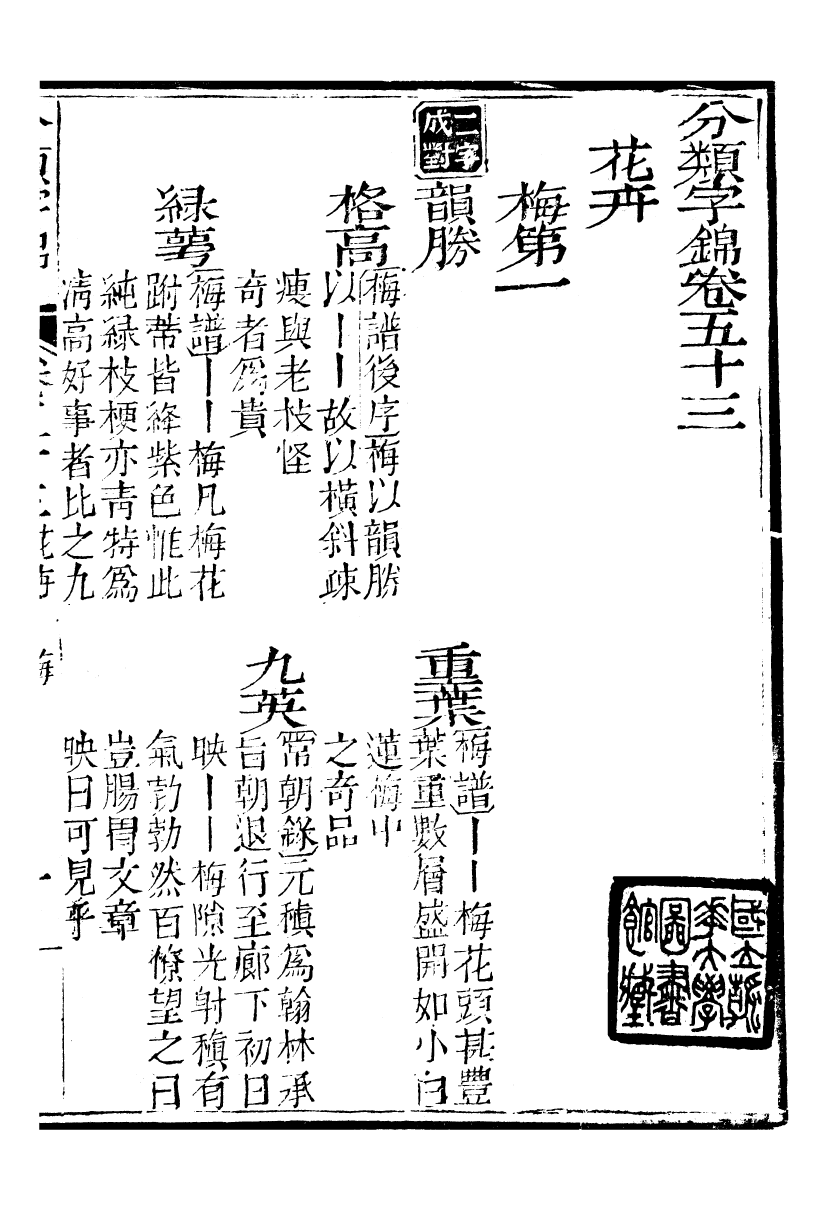 分類字錦卷五十三
花卉
梅第一
二字成對
韻勝
重葉
梅譜丨丨梅花頭甚豐
葉重數層盛開如小白
蓮梅中
之奇品
格高
梅譜後序梅以韻勝
以丨丨故以橫斜疎
瘦與老枝怪
奇者爲貴
九英
常朝錄元稹爲翰林承
旨朝退行至廊下初日
映丨丨梅隙光射稹有
氣勃勃然百僚望之曰
豈腸胃文章
映日可見乎
綠萼
梅譜丨丨梅凡梅花
跗蔕皆絳紫色惟此
純綠枝梗亦青特爲
清高好事者比之九
國立清華大學圖書館藏